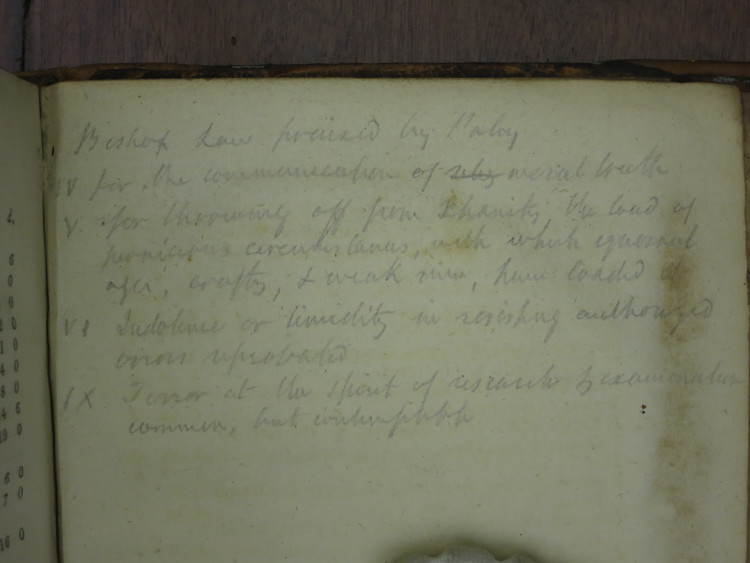 Bishop Law praised by Paley
IV for the communication of moral truth
V. for throwing off from Xtianity, the load of
pernicious circumstances, with which ignorant
ages, crafty, & weak men, have loaded it
VI Indolence or timidity in resisting authorized
errors reprobated
IX Terror at the spirit of research & examination
common, but contemptible
d.
6
0
0
0
0
0
0
6
19 0
6 0
7 0
16 0